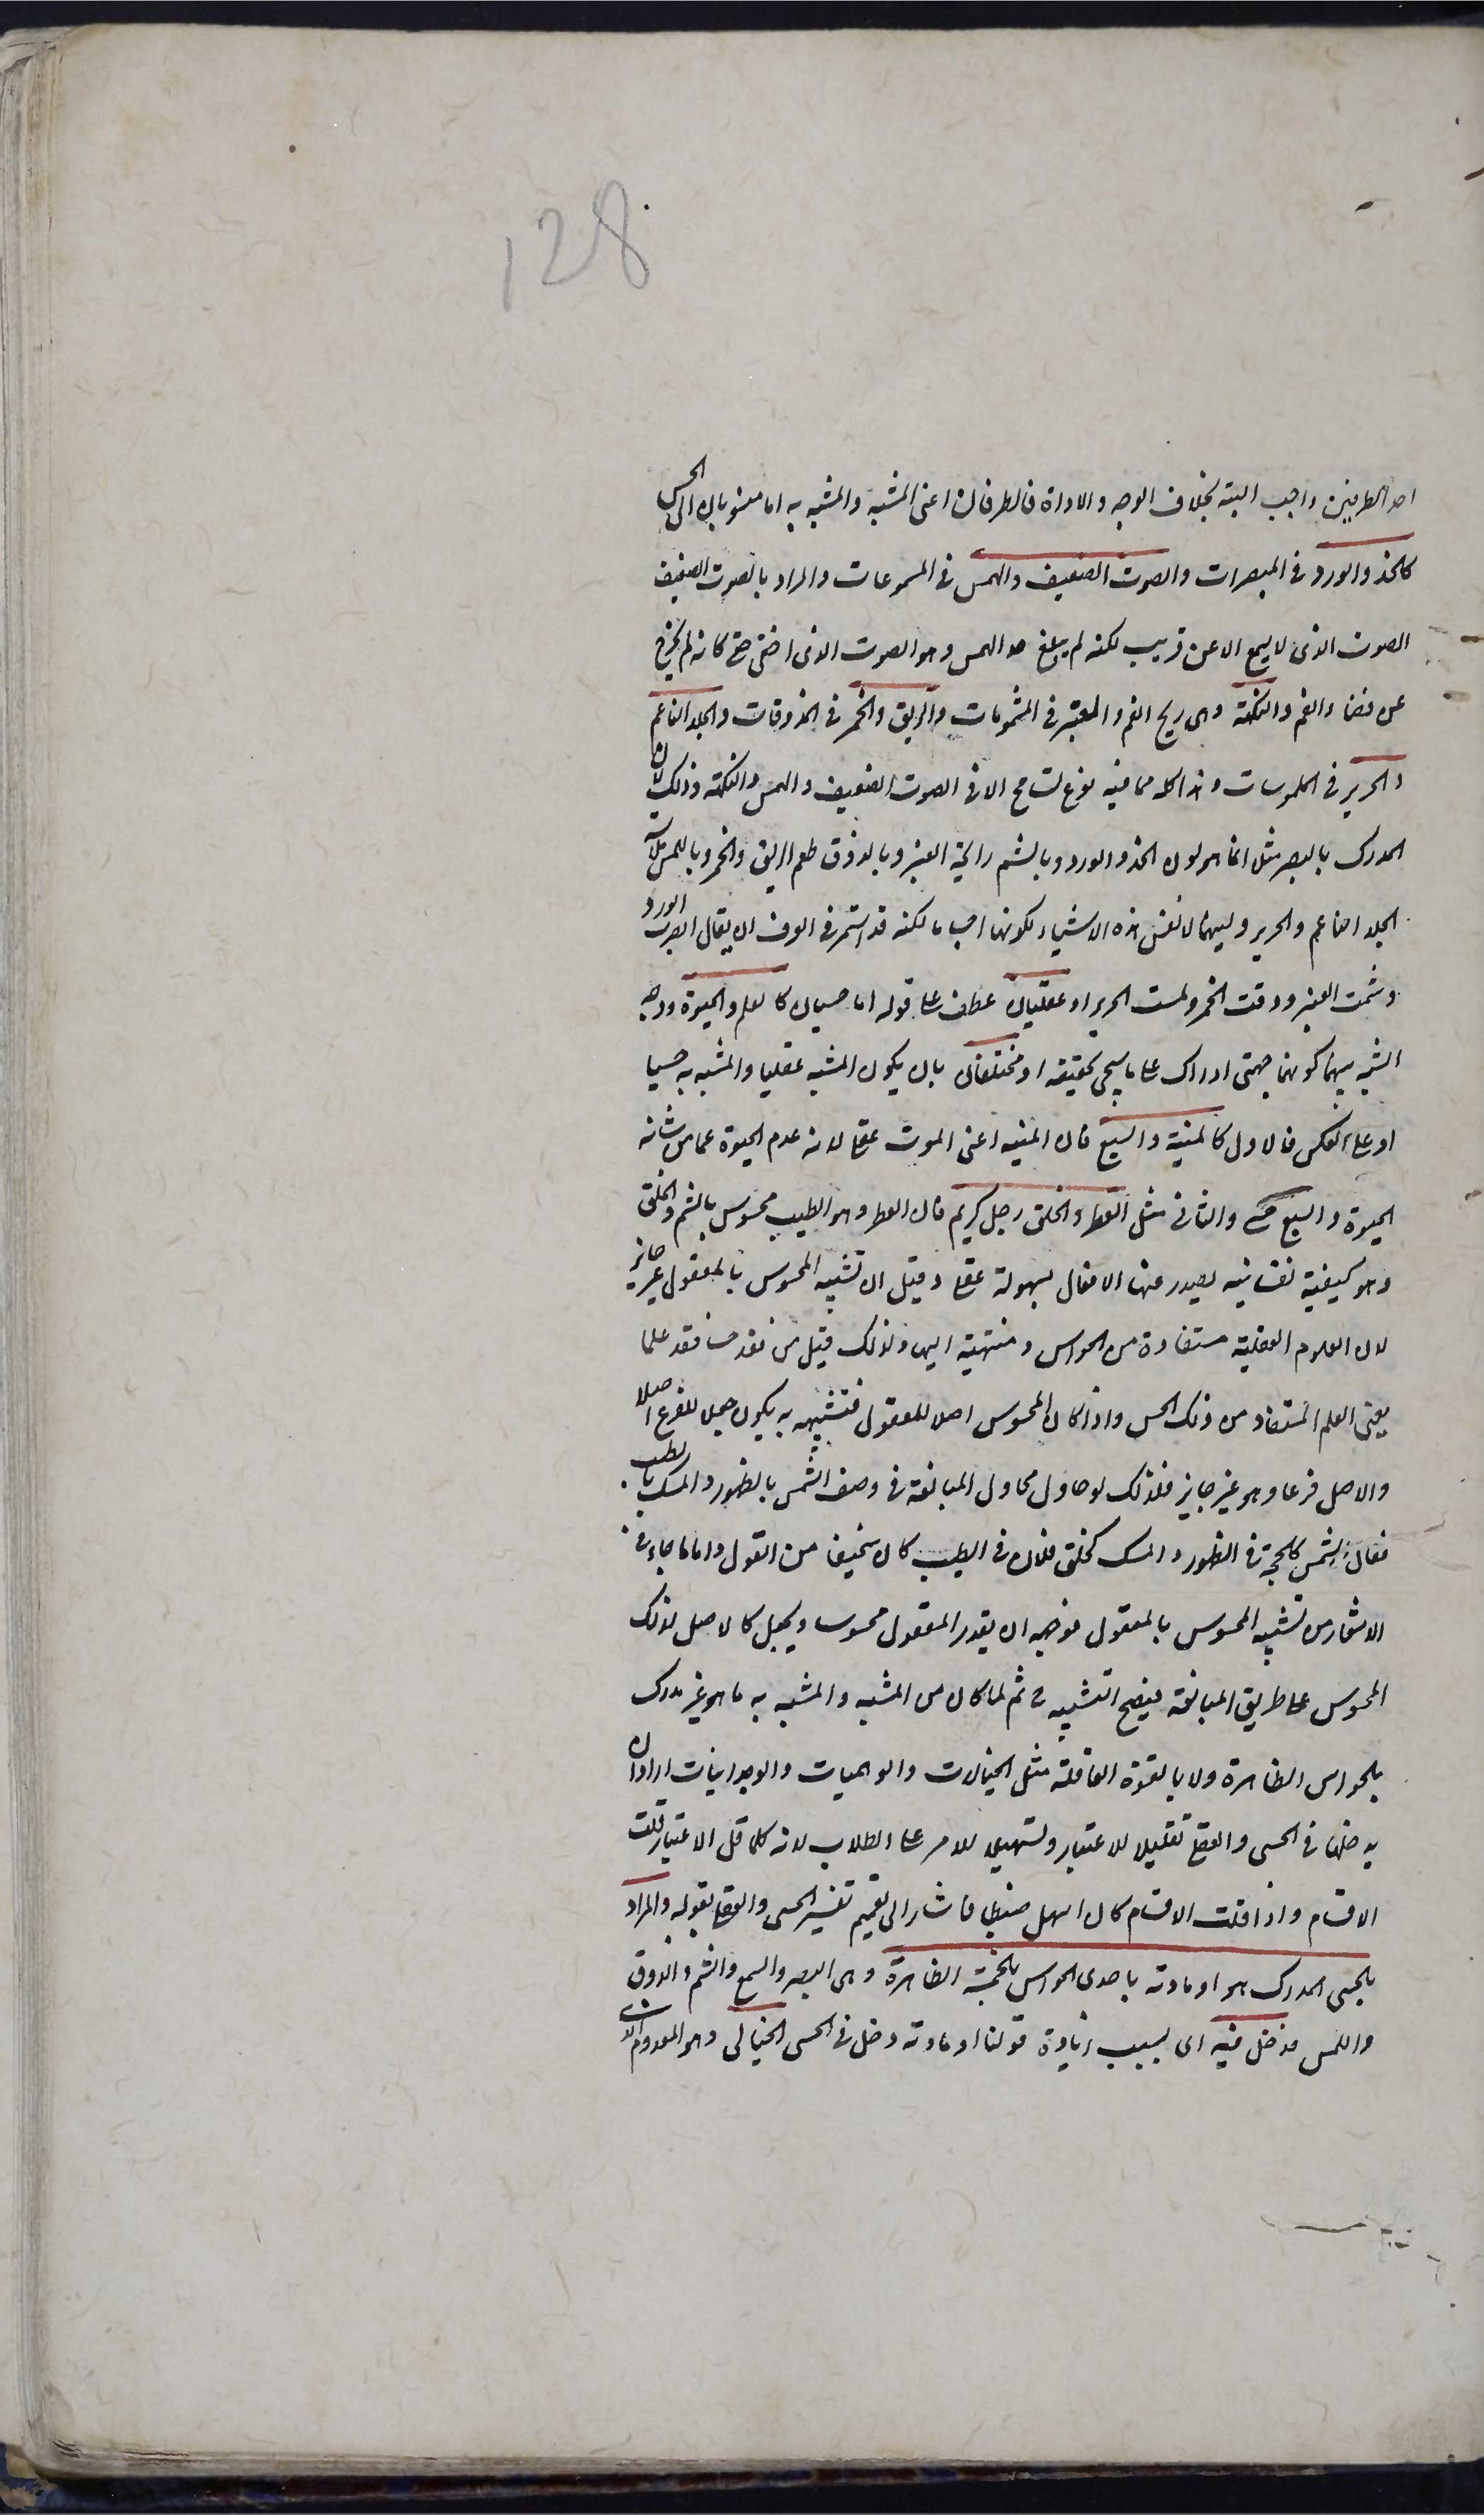 128
احد الطرفين واجب البتة بخلاف الوجه والاداة فالطرفان اعنى المشبه والمشبه به اما منسوبان الى الحس
كالخد والورد فى المبصرات والصوت الضعيف والهمس فى المسموعات والمراد بالصوت الضعيف
الصوت الذى لا يسمع الا عن قريب لكنه لم يبلغ حد الهمس وهو الصوت الذى اخفى حتى كانه لم يخرج
عن فضاء الفم والنكهة وهى ريح الفم والعنبر فى المشمومات والريق والخمر فى المذوقات والجلد الناعم
والحرير فى الملموسات وهذا كله مما فيه نوع تسامح الا فى الصوت الضعيف والهمس والنكهة وذلك لان
المدرك بالبصر مثلا انما هو لون الخد والورد وبالشم رايحة العنبر وبالذوق طعم الريق والخمر وباللمس ملاسة
الجلد الناعم والحرير ولينهما لا نفس هذه الاشياء لكونها اجساما لكنه قد استمر فى العرف ان يقال ابصرت الورد
وشممت العنبر وذقت الخمر ولمست الحرير او عقليان عطف على قوله اما حسيان كالعلم والحيوة ووجه
الشبه بينهما كونهما جهتى ادراك على ما سيجئ تحقيقه او مختلفان بان يكون المشبه عقليا والمشبه به حسيا
او على العكس فالاول كالمنية والسبع فان المنية اعنى الموت عقلى لانه عدم الحيوة عما من شانه
الحيوة والسبع حسى والثانى مثل العطر والخلق رجل كريم فان العطر وهو الطيب محسوس بالشم والخلق
وهو كيفية نفسانية يصدر عنها الافعال بسهولة عقلى وقيل ان تشبيه المحسوس بالمعقول غير جايز
لان العلوم العقلية مستفادة من الحواس ومنتهية اليها ولذلك قيل من فقد حسا فقد علما
يعنى العلم المستفاد من ذلك الحس واذا كان المحسوس اصلا للمعقول فتشبيهه به يكون جعلا للفرع اصلا
والاصل فرعا وهو غير جايز فلذلك لو حاول محاول المبالغة فى وصف الشمس بالظهور والمسك بالطيب
فقال الشمس كالحجة فى الظهور والمسك كخلق فلان فى الطيب كان سخيفا من القول واما ما جاء فى
الاشعار من تشبيه المحسوس بالمعقول فوجهه ان يقدر المعقول محسوسا ويجعل كالاصل لذلك
المحسوس على طريق المبالغة فيصح التشبيه ح ثم لما كان من المشبه والمشبه به ما هو غير مدرك
بالحواس الظاهرة ولا بالقوة العاقلة مثل الخياليات والوهميات والوجدانيات اراد ان
يدخلها فى الحسى والعقلى تقليلا للاعتبار وتسهيلا للامر على الطلاب لانه كلما قل الاعتبار قلت
الاقسام واذا قلت الاقسام كان اسهل ضبطا فاشار الى تعميم تفسير الحسى والعقلى بقوله والمراد
بالحسى المدرك هو او مادته باحدى الحواس الخمسة الظاهرة وهى البصر والسمع والشم والذوق
واللمس فدخل فيه اى بسبب زيادة قولنا او مادته دخل فى الحسى الخيالى وهو المعدوم الذى